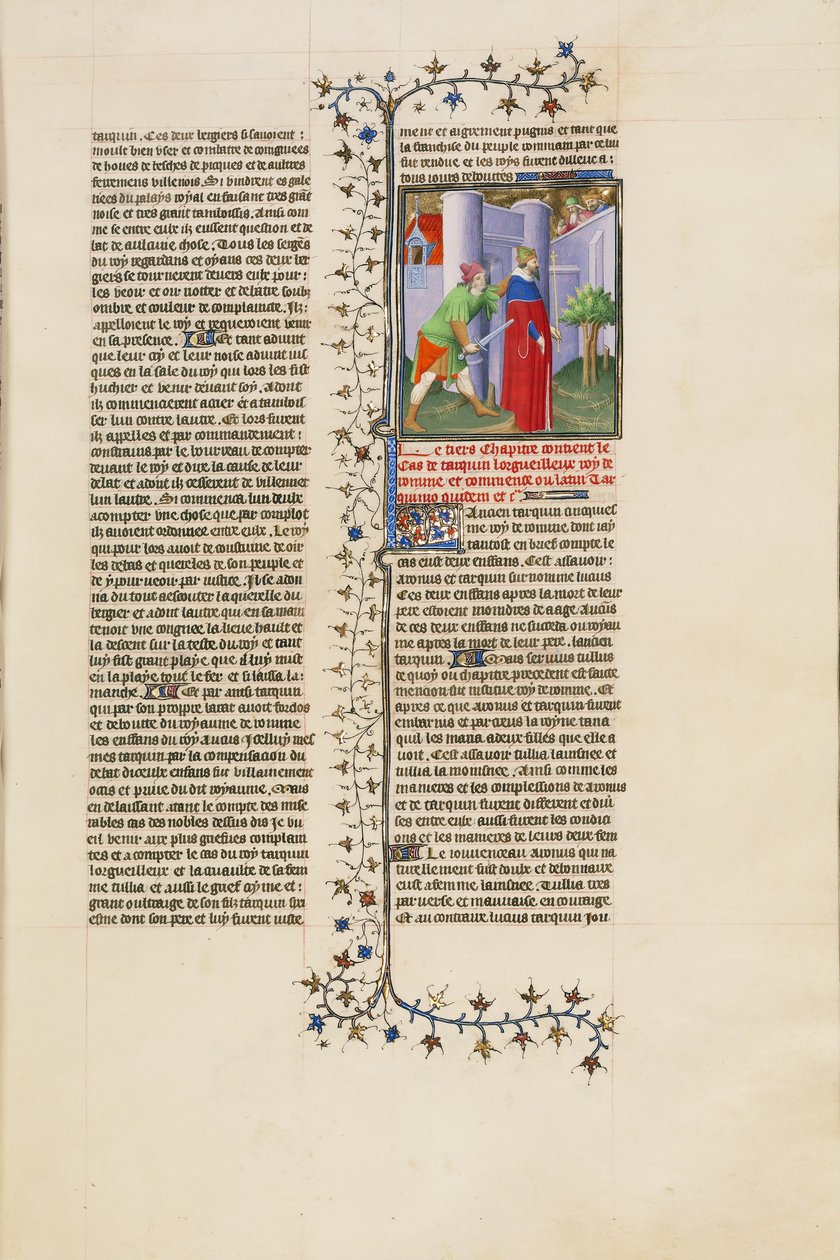 tarquin. Ces deux bergiers si sauoient :
moult bien vser et combatre de conigniees
de houes de besches de picques et de aultres
ferremens villenois. Si vindrent es gale
ries du palays royal en faisant tres grāt
noise et tres grant tamboissis. Ainsi com
me se entre eulx ilz eussent question et de
bat de aulcune chose. Tous les sergēs
du roy regardans et oyans ces deux ber
giers se tournerent deuers eulx pour :
les veoir et oir notter et debatre soubz
ombre et couleur de complaincte. Ilz :
appelloient le roy et requeroient venir
en sa presence. Et tant aduint
que leur cry et leur noise aduint ius
ques en la sale du roy qui lors les fist
huchier et venir deuant soy. Adont
ilz commencierent a crier et a tambois
ser lun contre lautre. Et lors furent
ilz appelles et par commandement :
constrains par le bourreau de compter
deuant le roy et dire la cause de leur
debat et adont ilz cesserent de villenner
lun lautre. Si commenca lun deulx
a compter vne chose que par complot
ilz auoient ordonnee entre eulx. Le roy
qui pour lors auoit de coustume de oir
les debas et quereles de son peuple et
de y pourueoir par iustice. Il se adon
na du tout a escouter la querelle du
bergier et adont lautre qui en sa main
tenoit vne congniee la lieue hault et
la descent sur la teste du roy et tant
luy fist grant playe que il luy mist
en la playe tout le fer et si laissa la :
manche. Et par ainsi tarquin
qui par son propre barat auoit fordos
et deboutte du royaume de romme
les enffans du roy Ancus Icelluy mes
mes tarquin par la compensacion du
debat diceulx enfans fut villainement
occis et priue du dit royaume. Mais
en delaissant atant le compte des mise
rables cas des nobles dessus dis Je vu
eil venir aux plus griefues complain
tes et a compter le cas du roy tarquin
lorgueilleux et la cruaulte de sa fem
me tullia et aussi le grief cryme et :
grant oultraige de son filz tarquin sex
tine dont son pere et luy furent iuste
ment et aigrement pugnis et tant que
la franchise du peuple rommain par ce luy
fut rendue et les roys furent dilleuc a :
tous iours deboutes
Le tiers Chapitre contient le
Cas de tarquin lorgueilleux roy de
romme et commence ou latin Tar
quinio quidem et cͣ.
Ancien tarquin cincques
me roy de romme dont iay
tantost en brief compte le
cas eust deux enffans. Cest assauoir :
Aronus et tarquin surnomme lucius
Ces deux enffans apres la mort de leur
pere estoient moindres de aage Aucūs
de ces deux enffans ne succeda ou royau
me apres la mort de leur pere. lancien
tarquin. Mais seruius tullius
de quoy ou chapitre precedent est faicte
mencion fut institue roy de romme. Et
apres ce que Aronus et tarquin furent
embarnis et parcreus la royne tana
quil les maria a deux filles que elle a
uoit. Cest assauoir tullia lainsnee et
tullia la moinsnee. Ainsi comme les
manieres et les complexions de Aronus
et de tarquin furent different et diū
ses entre eulx aussi furent les condici
ons et les manieres de leurs deux fem
Le iouuenceau Aronus qui na
turellement fust doulx et debonnaire
eust a femme lainsnee. Tullia tres
peruerse et mauuaise en couraige
Et au contraire lucius tarquin Jou